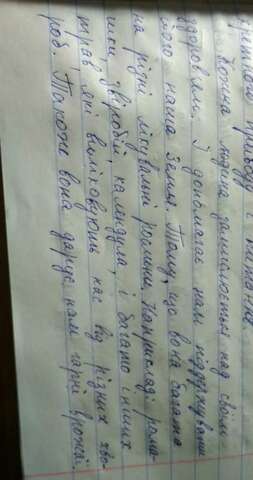 приводу і питання
Кожна людина замислюється над своїм
здоров'ям. І допомагає нам піддержувати
його наша Земля. Тому, що вона багата
на різні лікувальні рослини. Наприклад: рома-
шки, звіробій, календула, і багато інших
трав, які виліковують нас від різних хво-
роб. Також вона дарує нам гарні врожаї.